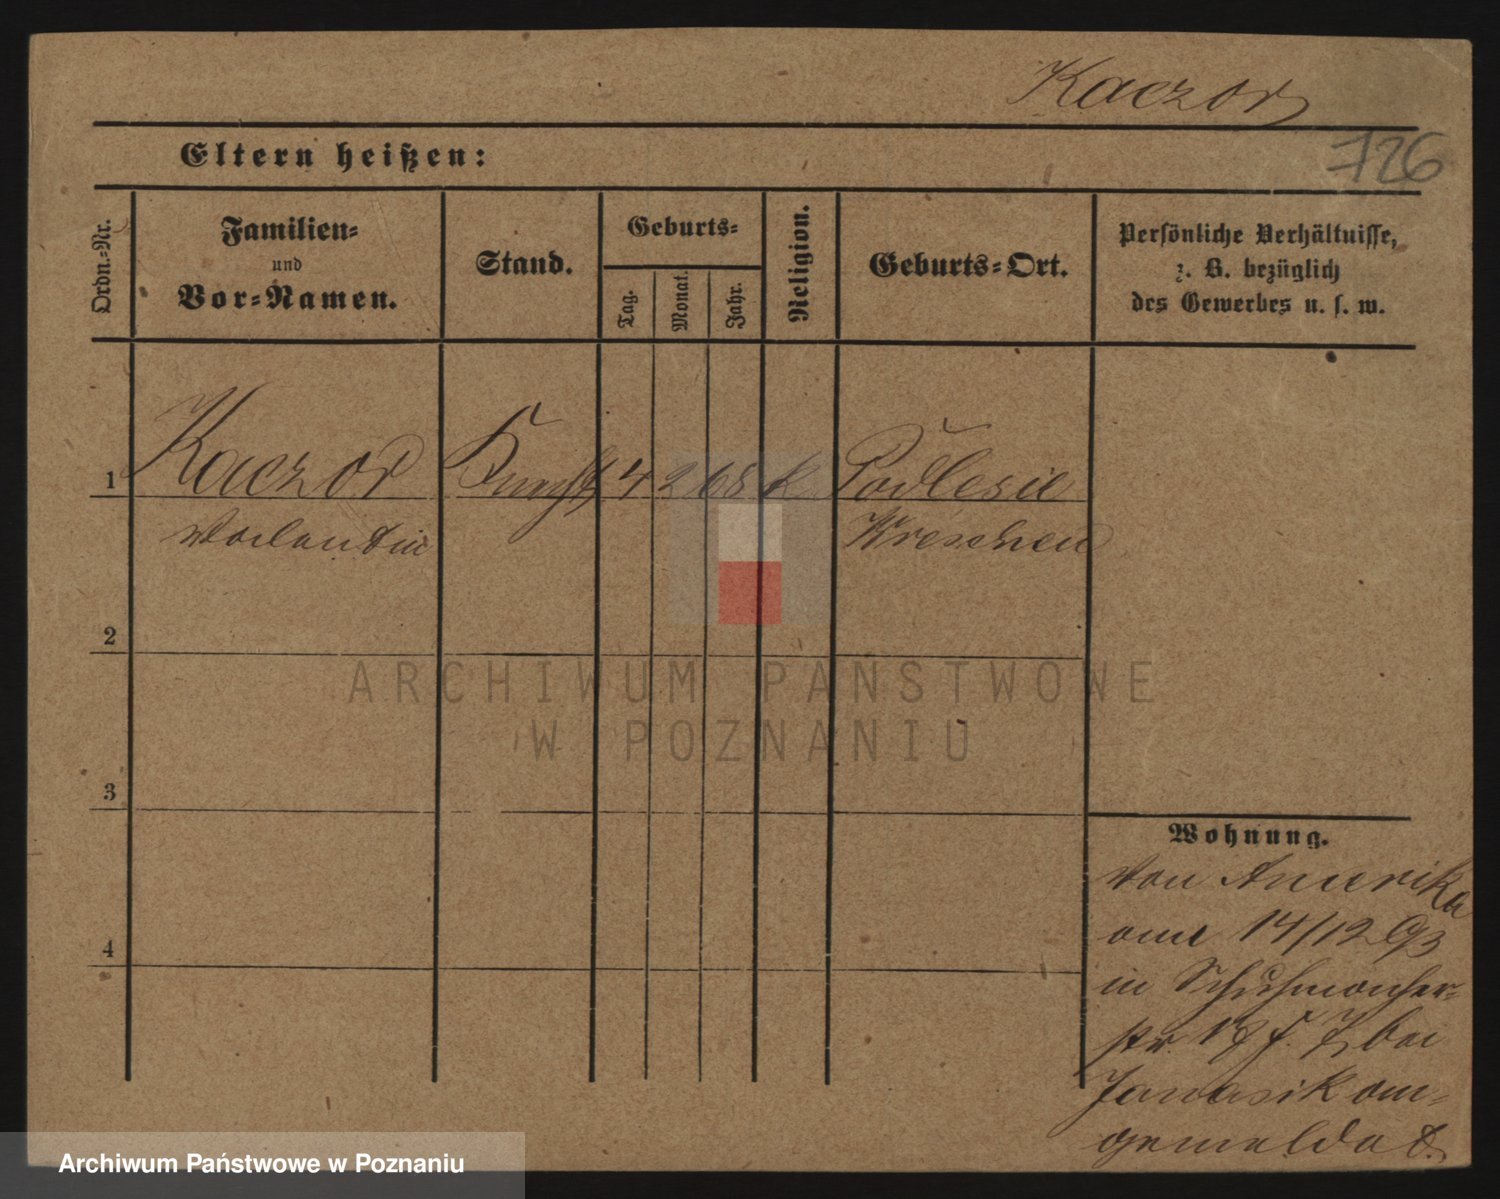 Kaczor
726
Eltern heißen:
Ordn.-Nr.
Familien-
und
Vor-Namen.
Stand.
Geburts-
Tag.
Monat.
Jahr.
Religion.
Geburts-Ort.
Persönliche Verhältnisse,
z. B. bezüglich
des Gewerbes u. s. w.
1 Kaczor 4 2 68 k Podlesie
Valentin Wreschen
2
3
4
Wohnung.
von Amerika
am 14/12 93
in Schuhmacher-
str. bei
Janasik an-
gemeldet.
ARCHIWUM PAŃSTWOWE
W POZNANIU
Archiwum Państwowe w Poznaniu